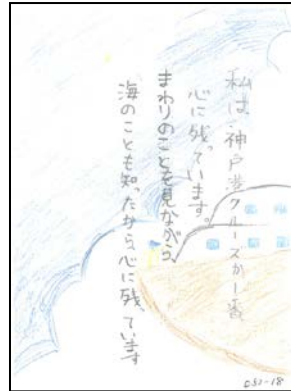 私は、神戸港クルーズが一番
心に残っています。
まわりのことを見ながら、
海のことも知ったから心に残っています